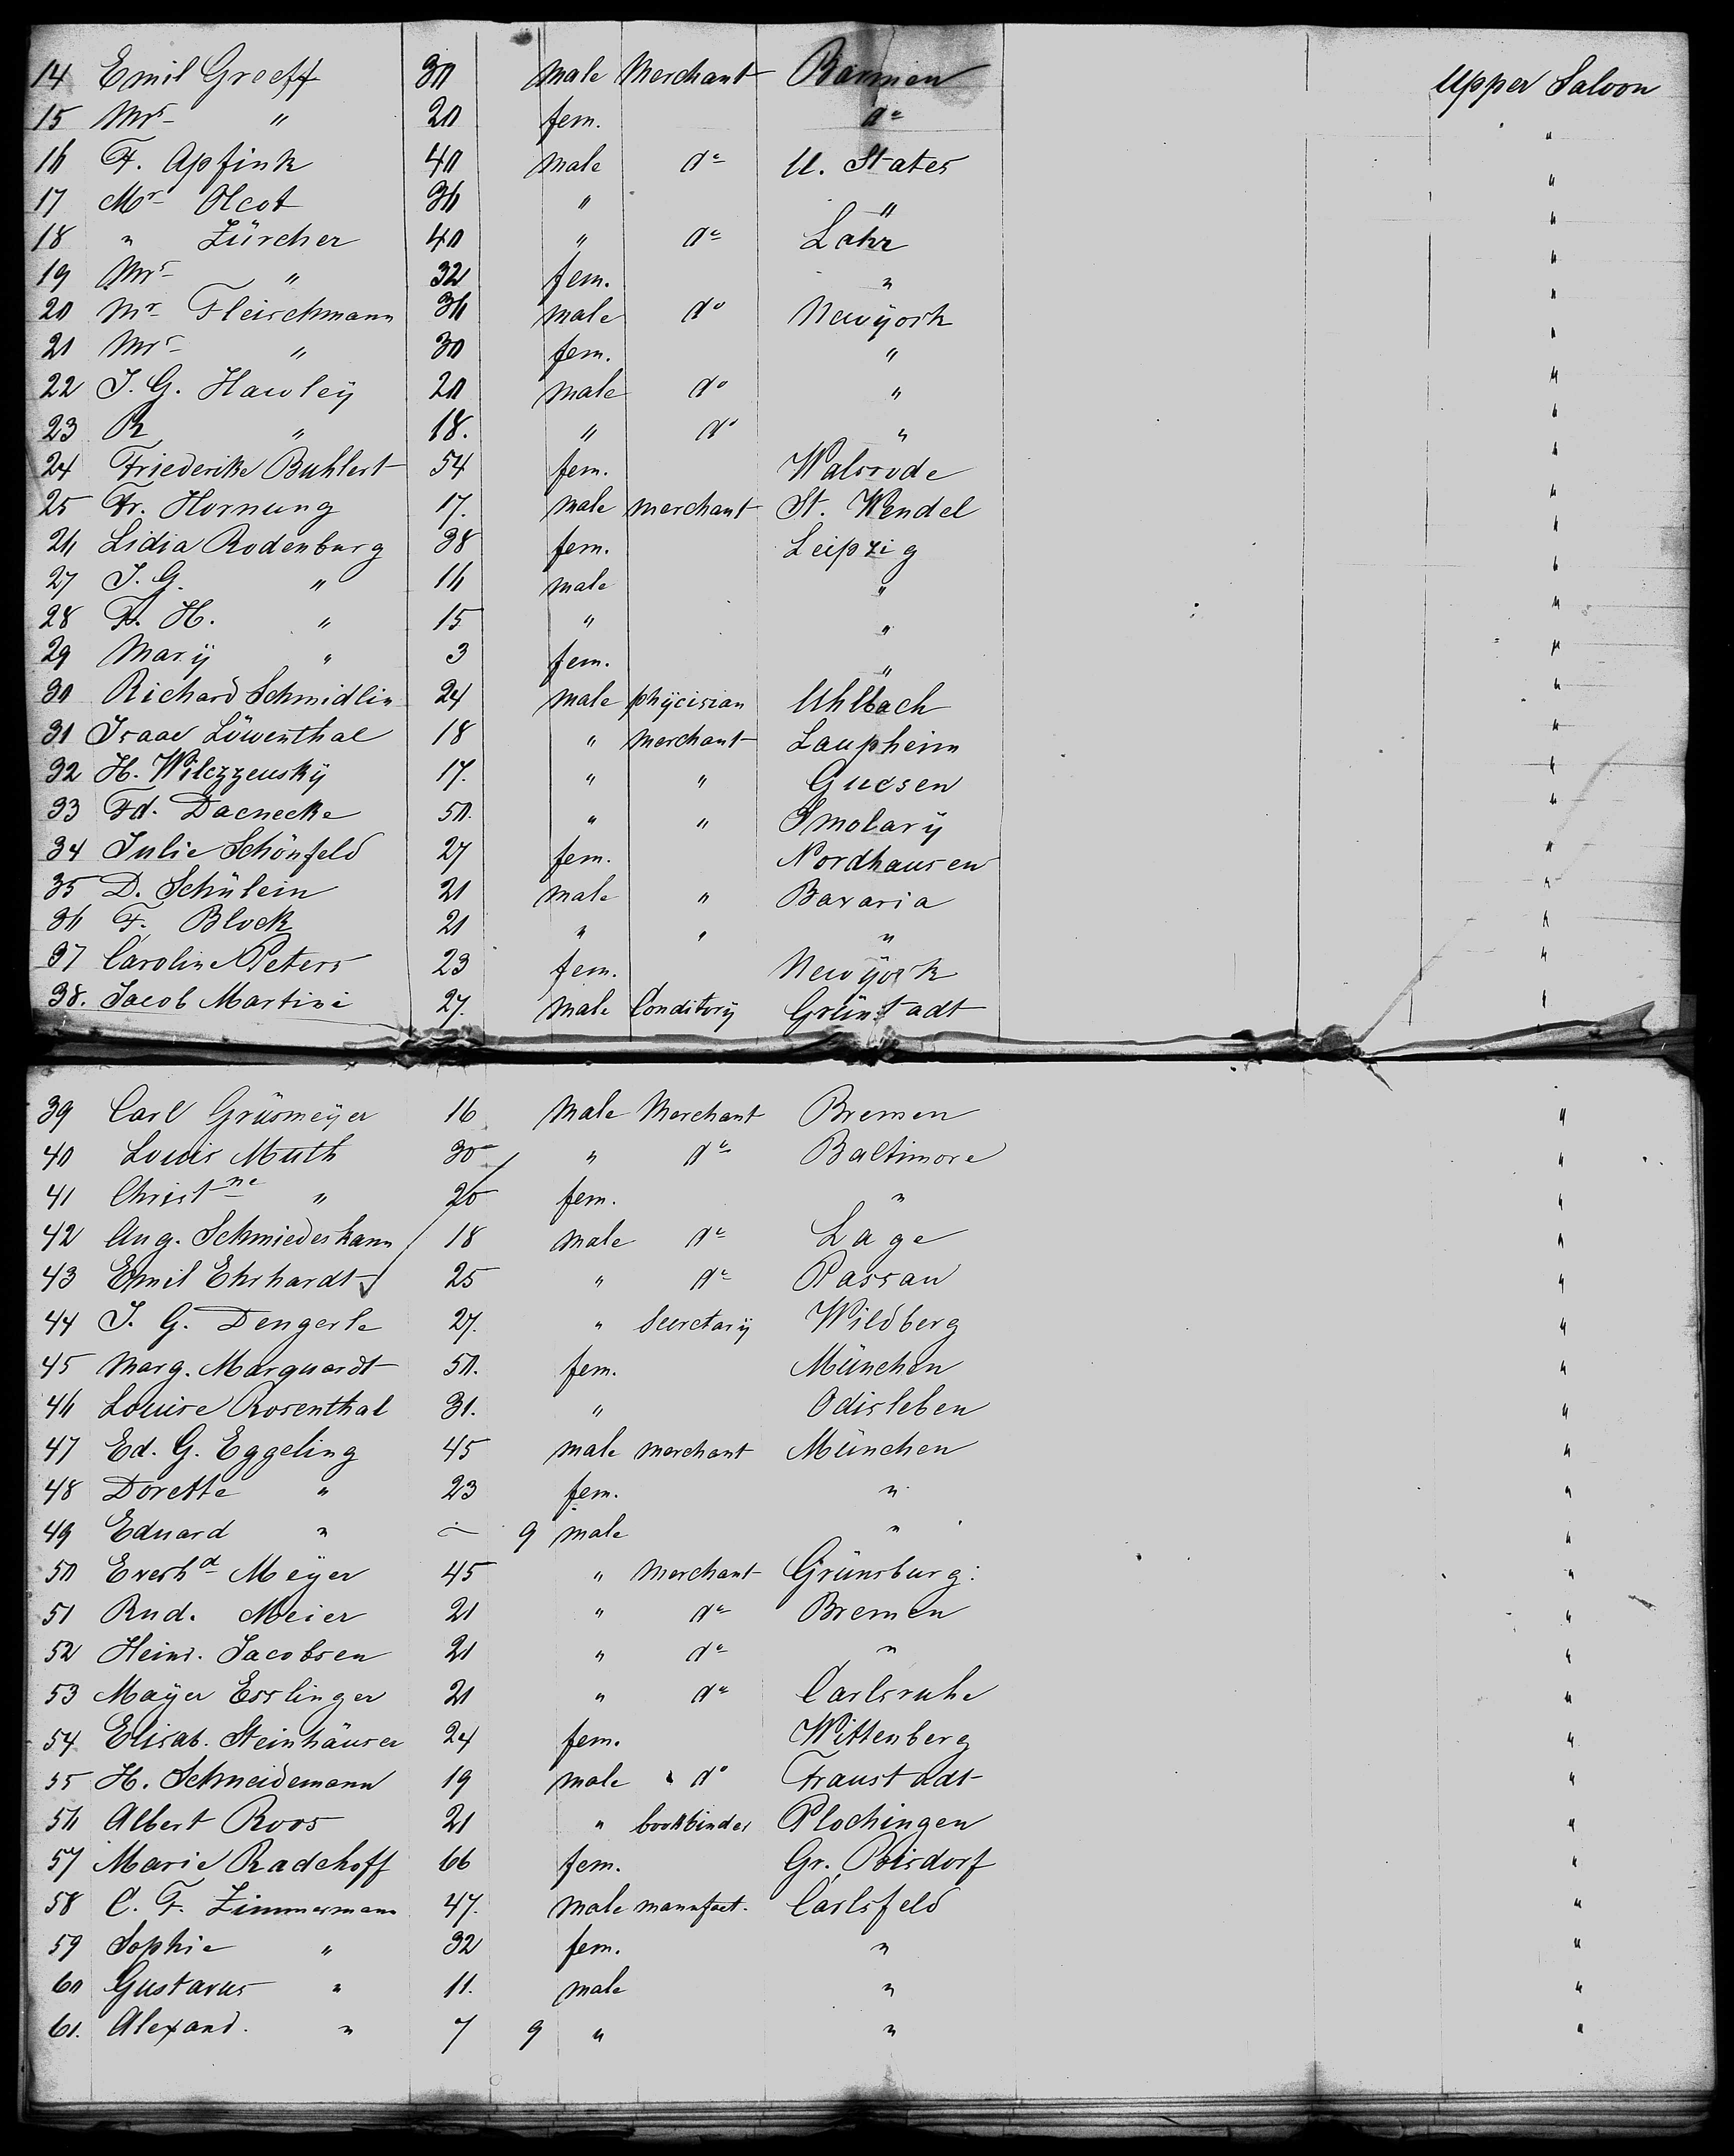 14 Emil Groeff 30 male Merchant Barmen Upper Saloon
15 Mrs " 20 fem. do "
16 F. Apfink 40 male do U. States "
17 Mr Olcot 36 " " "
18 " Zürcher 40 " do Lahr "
19 Mrs " 32 fem. " "
20 Mr Fleischmann 36 male do Newÿork "
21 Mrs " 30 fem. " "
22 J. G. Hawleÿ 20 male do " "
23 R " 18. " do " "
24 Friederike Buhlert 54 fem. Walsrode "
25 Fr. Hornung 17. male merchant St. Wendel "
26 Lidia Rodenburg 38 fem. Leipzig "
27 J. G. " 16 male " "
28 F. H. " 15 " " "
29 Marÿ " 3 fem. " "
30 Richard Schmidlin 24 male phÿcisian Uhlbach "
31 Isaac Löwenthal 18 " Merchant Laupheim "
32 H. Wilczzenskÿ 17. " " Gucsen "
33 Fd. Daenecke 50. " " Smolarÿ "
34 Julie Schönfeld 27 fem. Nordhausen "
35 D. Schülein 21 male " Bavaria "
36 F. Block 21 " " " "
37 Caroline Peters 23 fem. Newÿork "
38. Jacob Martini 27. male Conditorÿ Grünstadt "
39 Carl Grüsmeÿer 16 male Merchant Bremen "
40 Louis Muth 30 " do Baltimore "
41 Christne " 20 fem. " "
42 Aug. Schmiedeskann 18 male do Lage "
43 Emil Ehrhardt 25 " do Passau "
44 J. G. Dengerle 27. " Secretarÿ Wildberg "
45 Marg. Marquardt 50. fem. München "
46 Louise Rosenthal 31. " Odisleben "
47 Ed. G. Eggeling 45 male merchant München "
48 Dorette " 23 fem. " "
49 Eduard " — 9 male " "
50 Everhd Meÿer 45 " Merchant Grünsburg: "
51 Rud. Meier 21 " do Bremen "
52 Heinr. Jacobsen 21 " do " "
53 Maÿer Esslinger 21 " do Carlsruhe "
54 Elisab. Steinhäuser 24 fem. Wittenberg "
55 H. Schneidemann 19 male do Fraustadt "
56 Albert Roos 21 " bookbinder Plochingen "
57 Marie Radehoff 66 fem. Gr. Poisdorf "
58 C. F. Zimmermann 47. male manufact. Carlsfeld "
59 Sophie " 32 fem. " "
60 Gustavus " 11. male " "
61. Alexand. " 7 9 " " "